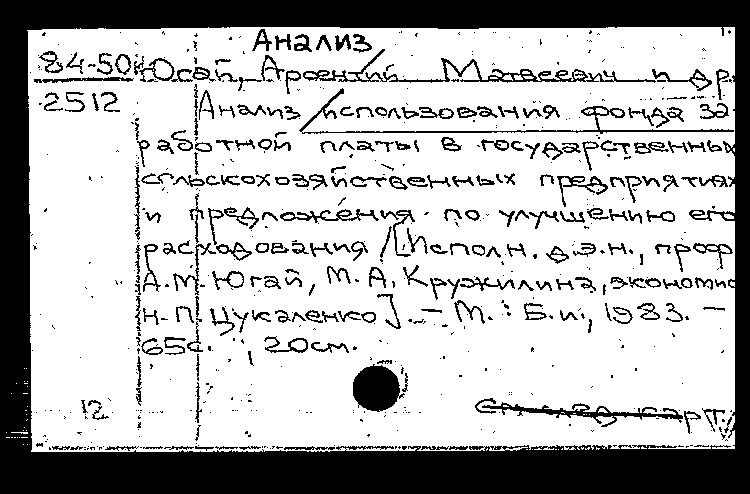 Анализ
84-50
2512
Югай, Арсентий Матвеевич и др.
Анализ / использования фонда за-
работной платы в государственных
сельскохозяйственных предприятиях
и предложения по улучшению его
расходования / [Исполн. д.э.н., проф
А.М. Югай, М.А. Кружилина, экономис
Н.П. Цукаленко]. — М. : Б.и., 1983. —
65с. ; 20см.
12
См. след. карт.